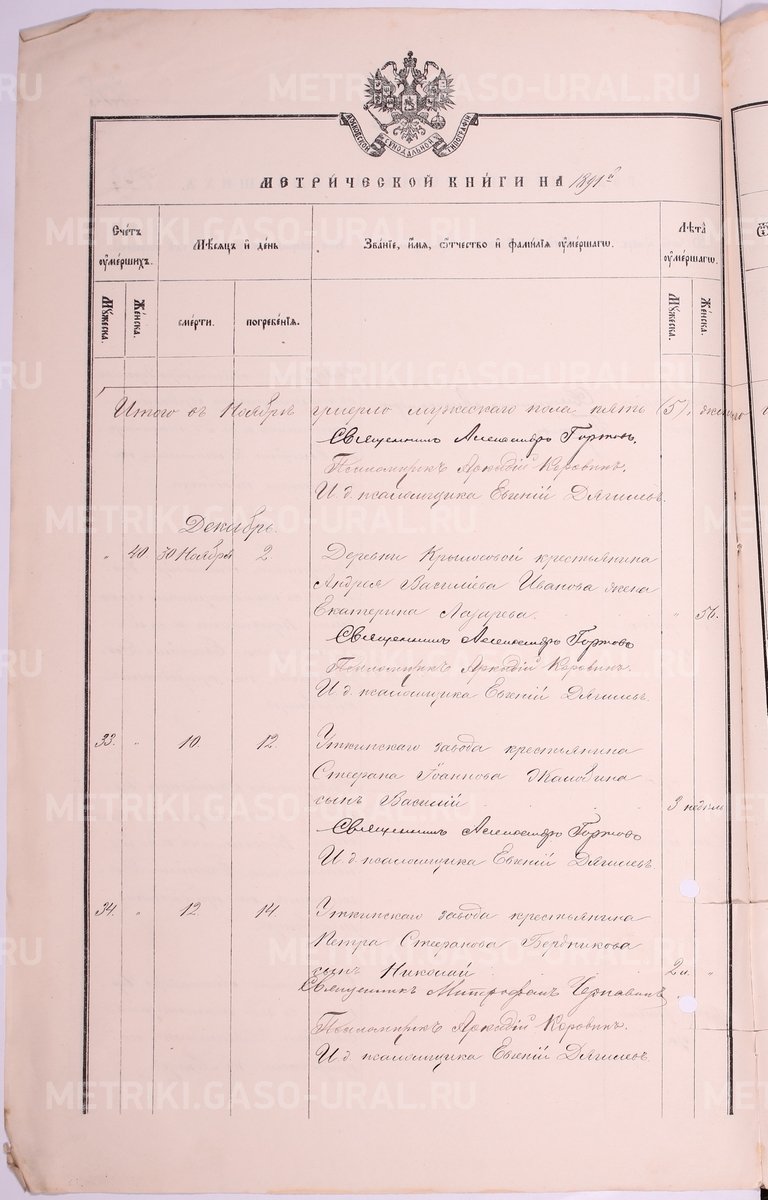 МОСКОВСКОЙ СѴНОДАЛЬНОЙ ТИПОГРАФІИ
МЕТРИЧЕСКОЙ КНИГИ НА 1891й
Счетъ умершихъ.
Мѣсяцъ и день
Званіе, имя, отчество и фамилія умершаго.
Лѣта умершаго.
Мужеска.
Женска.
смерти.
погребенія.
Мужеска.
Женска.
Итого въ Ноябрѣ умерло мужескаго пола пять (5),
Священникъ Александръ Горновъ.
Псаломщикъ Аркадій Коровинъ.
И. д. псаломщика Евгеній Дягилевъ.
Декабрь.
" 40 30 Ноября 2 Деревни Крылосовой крестьянина
Андрея Василіева Иванова жена
Екатерина Лазарева. " 56.
Священникъ Александръ
Псаломщикъ Аркадій Коровинъ.
И. д. псаломщика Евгеній Дягилевъ.
33. " 10. 12. Уткинскаго завода крестьянина
Стефана Іоаннова
сынъ Василій 3 недѣли
Священникъ Александръ
И. д. псаломщика Евгеній Дягилевъ
34. " 12. 14. Уткинскаго завода крестьянина
Петра Стефанова Бердникова
сынъ Николай 2 н. "
Священникъ Митрофанъ
Псаломщикъ Аркадій Коровинъ.
И. д. псаломщика Евгеній Дягилевъ.
METRIKI.GASO-URAL.RU